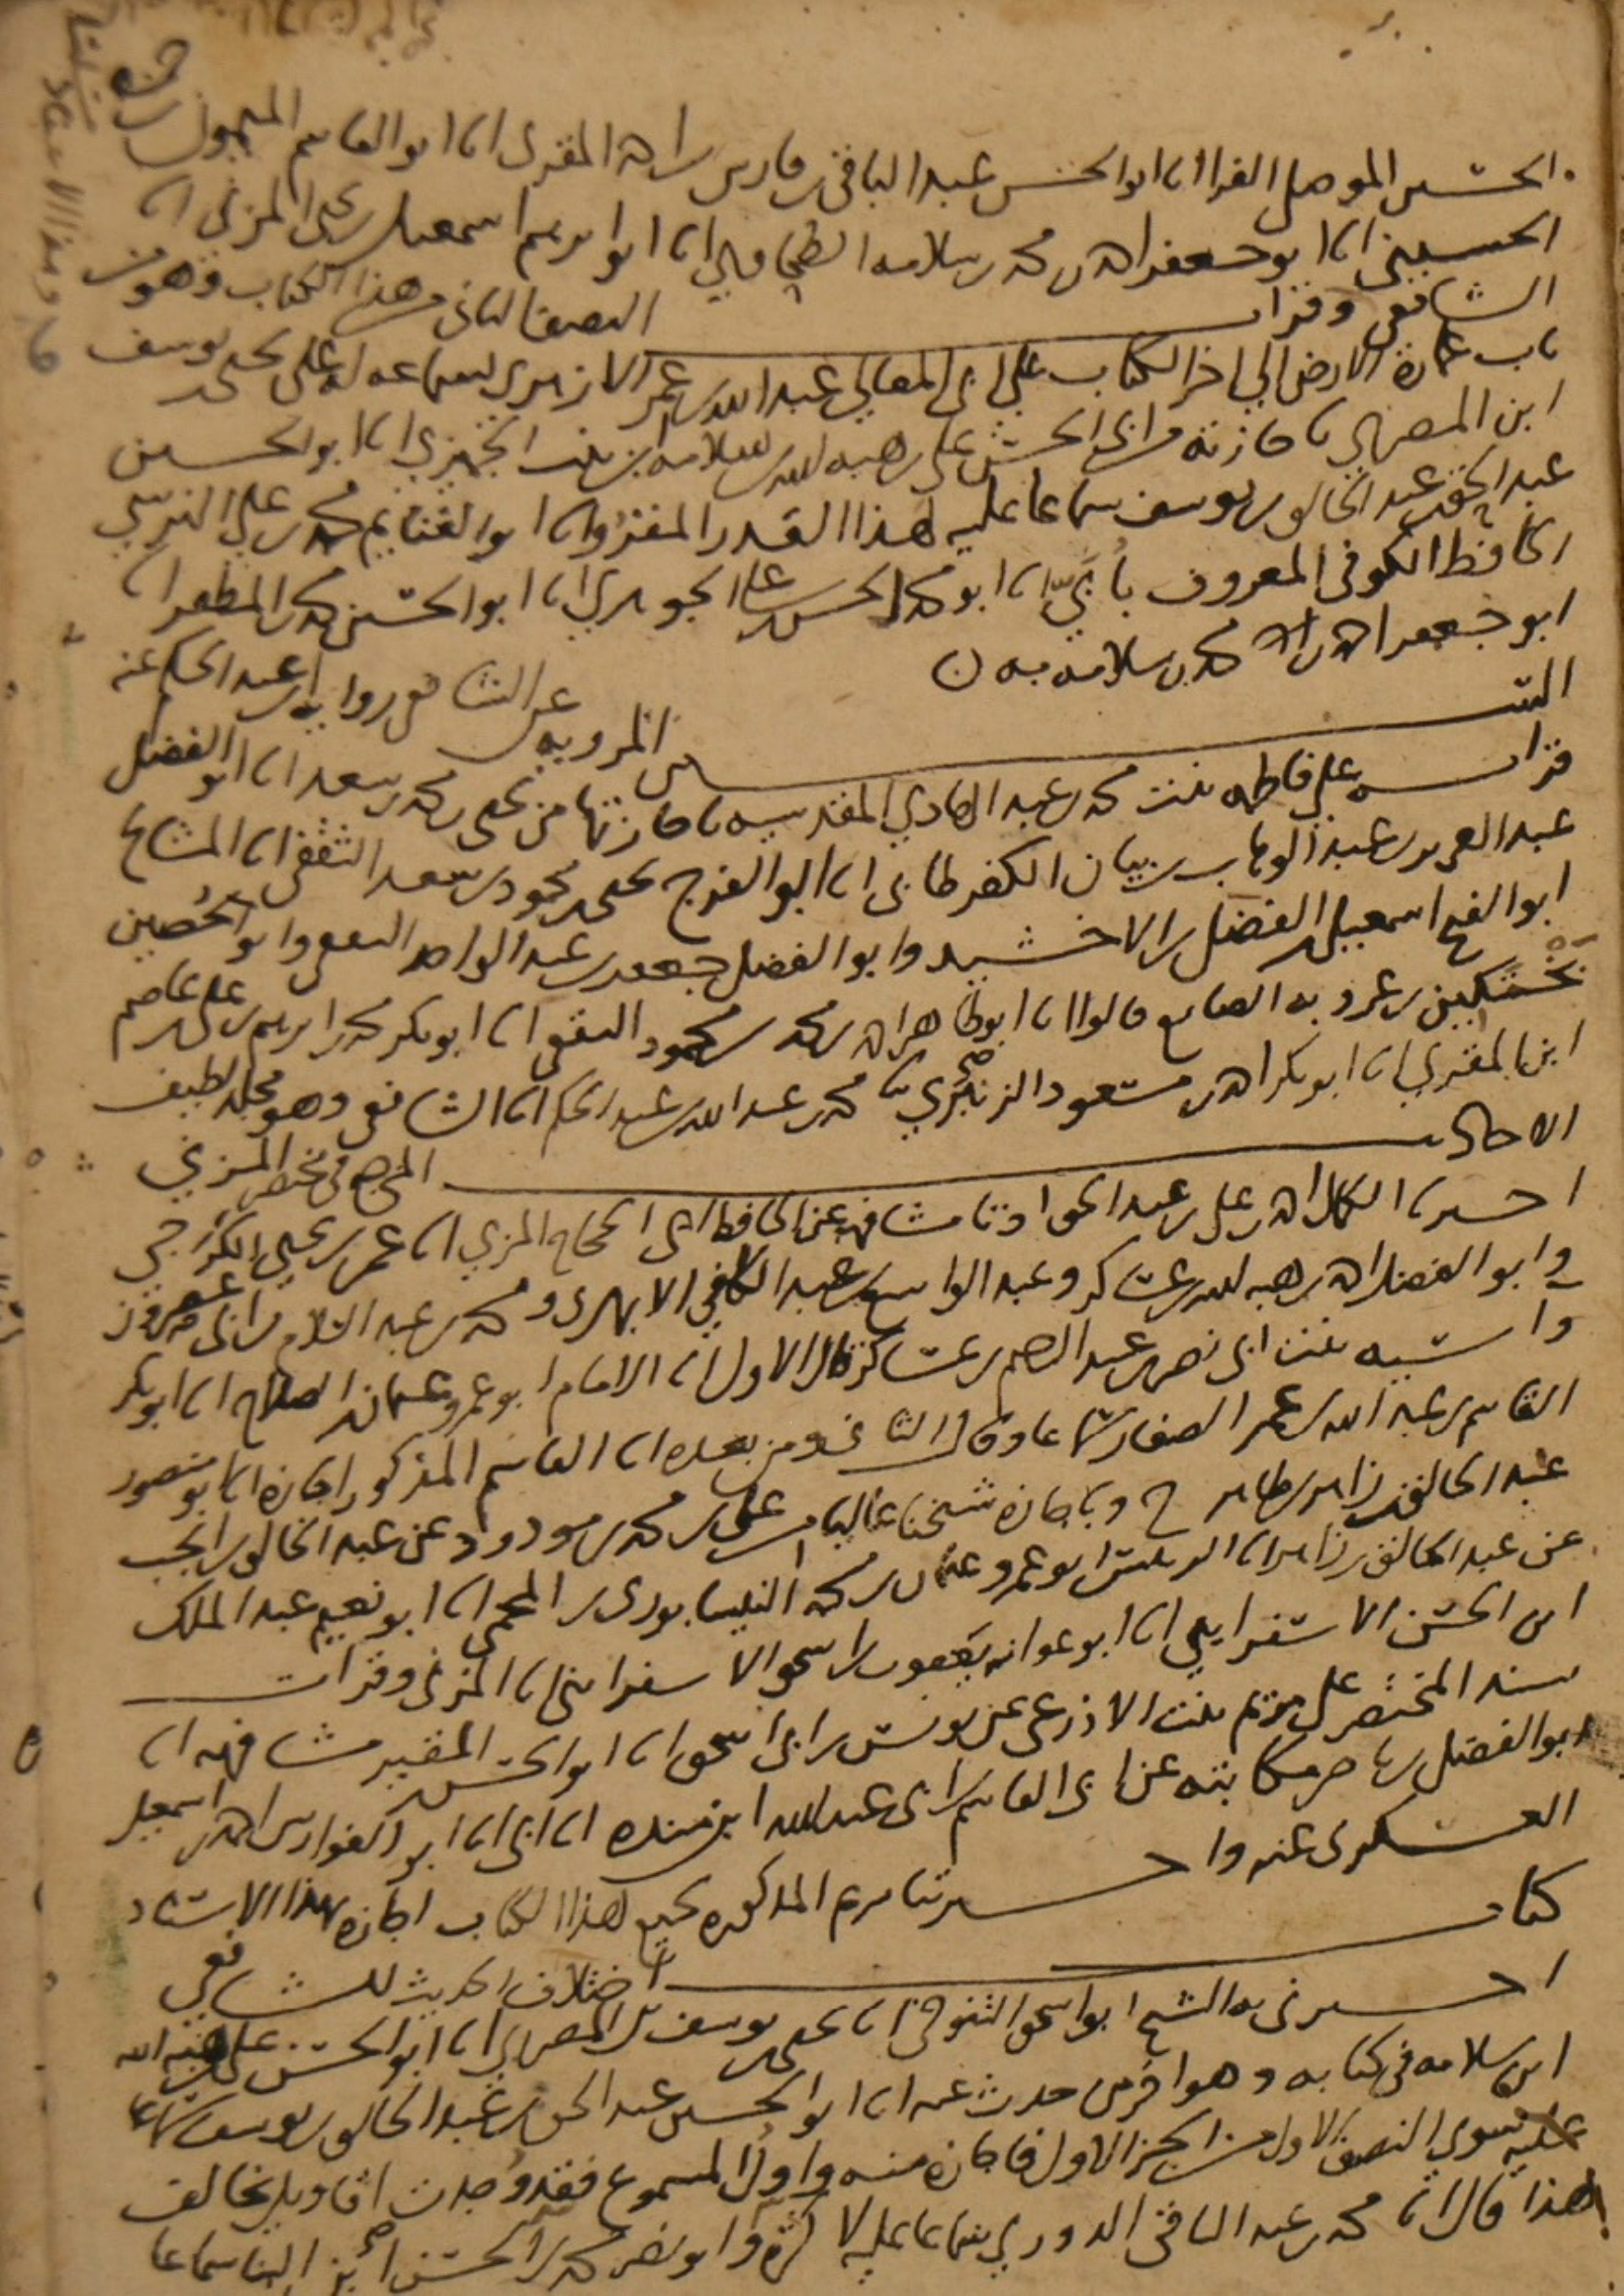 الحسين الموصلي الفرا انا ابو الحسن عبد الباقي بن فارس بن احمد المقري انا ابو القاسم الميمون بن حمزه
الحسيني انا ابو جعفر احمد بن محمد بن سلامه الطحاوي انا ابو ابرهيم اسمعيل بن يحيى المزني انا
الشافعي وقرات النصف الثاني من هذا الكتاب وهو من
باب عمارة الارض الى اخر الكتاب على ابي المعالي عبد الله بن عمر الازهري بسماعه له على يحيى بن يوسف
ابن المصري باجازته من ابي الحسن علي بن هبه الله بن سلامه ابن بنت الجميزي انا ابو الحسين
عبد الحق بن عبد الخالق بن يوسف سماعا عليه لهذا القدر المقروء انا ابو الغنايم محمد بن علي النرسي
الحافظ الكوفي المعروف بأُبَيّ انا ابو محمد الحسن بن علي الجوهري انا ابو الحسين محمد بن المظفر انا
ابو جعفر احمد بن محمد بن سلامه به ن
السنن المرويه عن الشافعي روايه ابن عبد الحكم عنه
قرات على فاطمه بنت محمد بن عبد الهادي المقدسيه باجازتها من يحيى بن محمد بن سعد انا ابو الفضل
عبد العزيز بن عبد الوهاب بن بيان الكفرطابي انا ابو الفرج يحيى بن محمود بن سعد الثقفي انا المشايخ
ابو الفتح اسمعيل بن الفضل بن الاخشيد وابو الفضل جعفر بن عبد الواحد الثقفي وابو الحصين
بختكين بن عمرويه الصايغ قالوا انا ابو طاهر احمد بن محمود الثقفي انا ابو بكر محمد بن ابرهيم بن علي بن عاصم
ابن المقري انا ابو بكر احمد بن مسعود الزنبري ثنا محمد بن عبد الله بن عبد الحكم انا الشافعي وهو مجلد لطيف
الاحاديث المخرجه في مختصر المزني
اخبرنا الكمال احمد بن علي بن عبد الحق اذنا مشافهة عن الحافظ ابي الحجاج المزي انا عمر بن يحيى الكرجي
وابو الفضل احمد بن هبه الله بن عساكر وعبد الواسع بن عبد الكافي الابهري ومحمد بن عبد السلام بن ابي عصرون
واسيه بنت ابي نصر عبد الرحيم بن عساكر قال الاول انا الامام ابو عمرو عثمان بن الصلاح انا ابو بكر
القاسم بن عبد الله بن عمر الصفار سماعا وقال الثاني ومن بعده انا القاسم المذكور اجازه انا ابو منصور
عبد الخالق بن زاهر بن طاهر ح وباجازة شيخنا عاليا من علي بن محمد بن مودود عن عبد الخالق بن انجب
عن عبد الخالق بن زاهر انا الرييس ابو عمرو عثمان بن محمد النيسابوري المحمي انا ابو نعيم عبد الملك
ابن الحسن الاسفراييني انا ابو عوانه يعقوب بن اسحق الاسفرايني انا المزني وقرات
سند المختصر على مريم بنت الاذرعي عن يونس بن ابي اسحق انا ابو الحسن بن المقير مشافهه انا
ابو الفضل بن ناصر مكاتبه عن ابي القاسم بن ابي عبد الله ابن منده انا ابي انا ابو الفوارس احمد بن اسمعيل
العسكري عنه واخبرتنا مريم المذكوره بجميع هذا الكتاب اجازه بهذا الاسناد
كتاب اختلاف الحديث للشافعي
اخبرني به الشيخ ابو اسحق التنوخي انا يحيى بن يوسف بن المصري انا ابو الحسن علي بن هبة الله
ابن سلامه في كتابه وهو اخر من حدث عنه انا ابو الحسين عبد الحق بن عبد الخالق بن يوسف سماعا
عليه سوى النصف الاول من الجزء الاول فاجازه منه واول المسموع فقد وجدت اقاويل تخالف
هذا قال انا محمد بن عبد الباقي الدوري سماعا عليه لاكثره وابو نصر محمد بن الحسن بن البنا سماعا